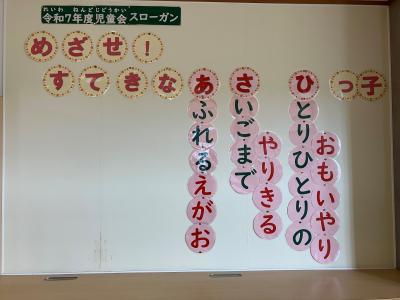 れいわ ねんどじどうかい
令和7年度児童会 スローガン
めざせ！
すてきな あさひっ子
あふれるえがお
さいごまで
やりきる
ひとりひとりの
おもいやり